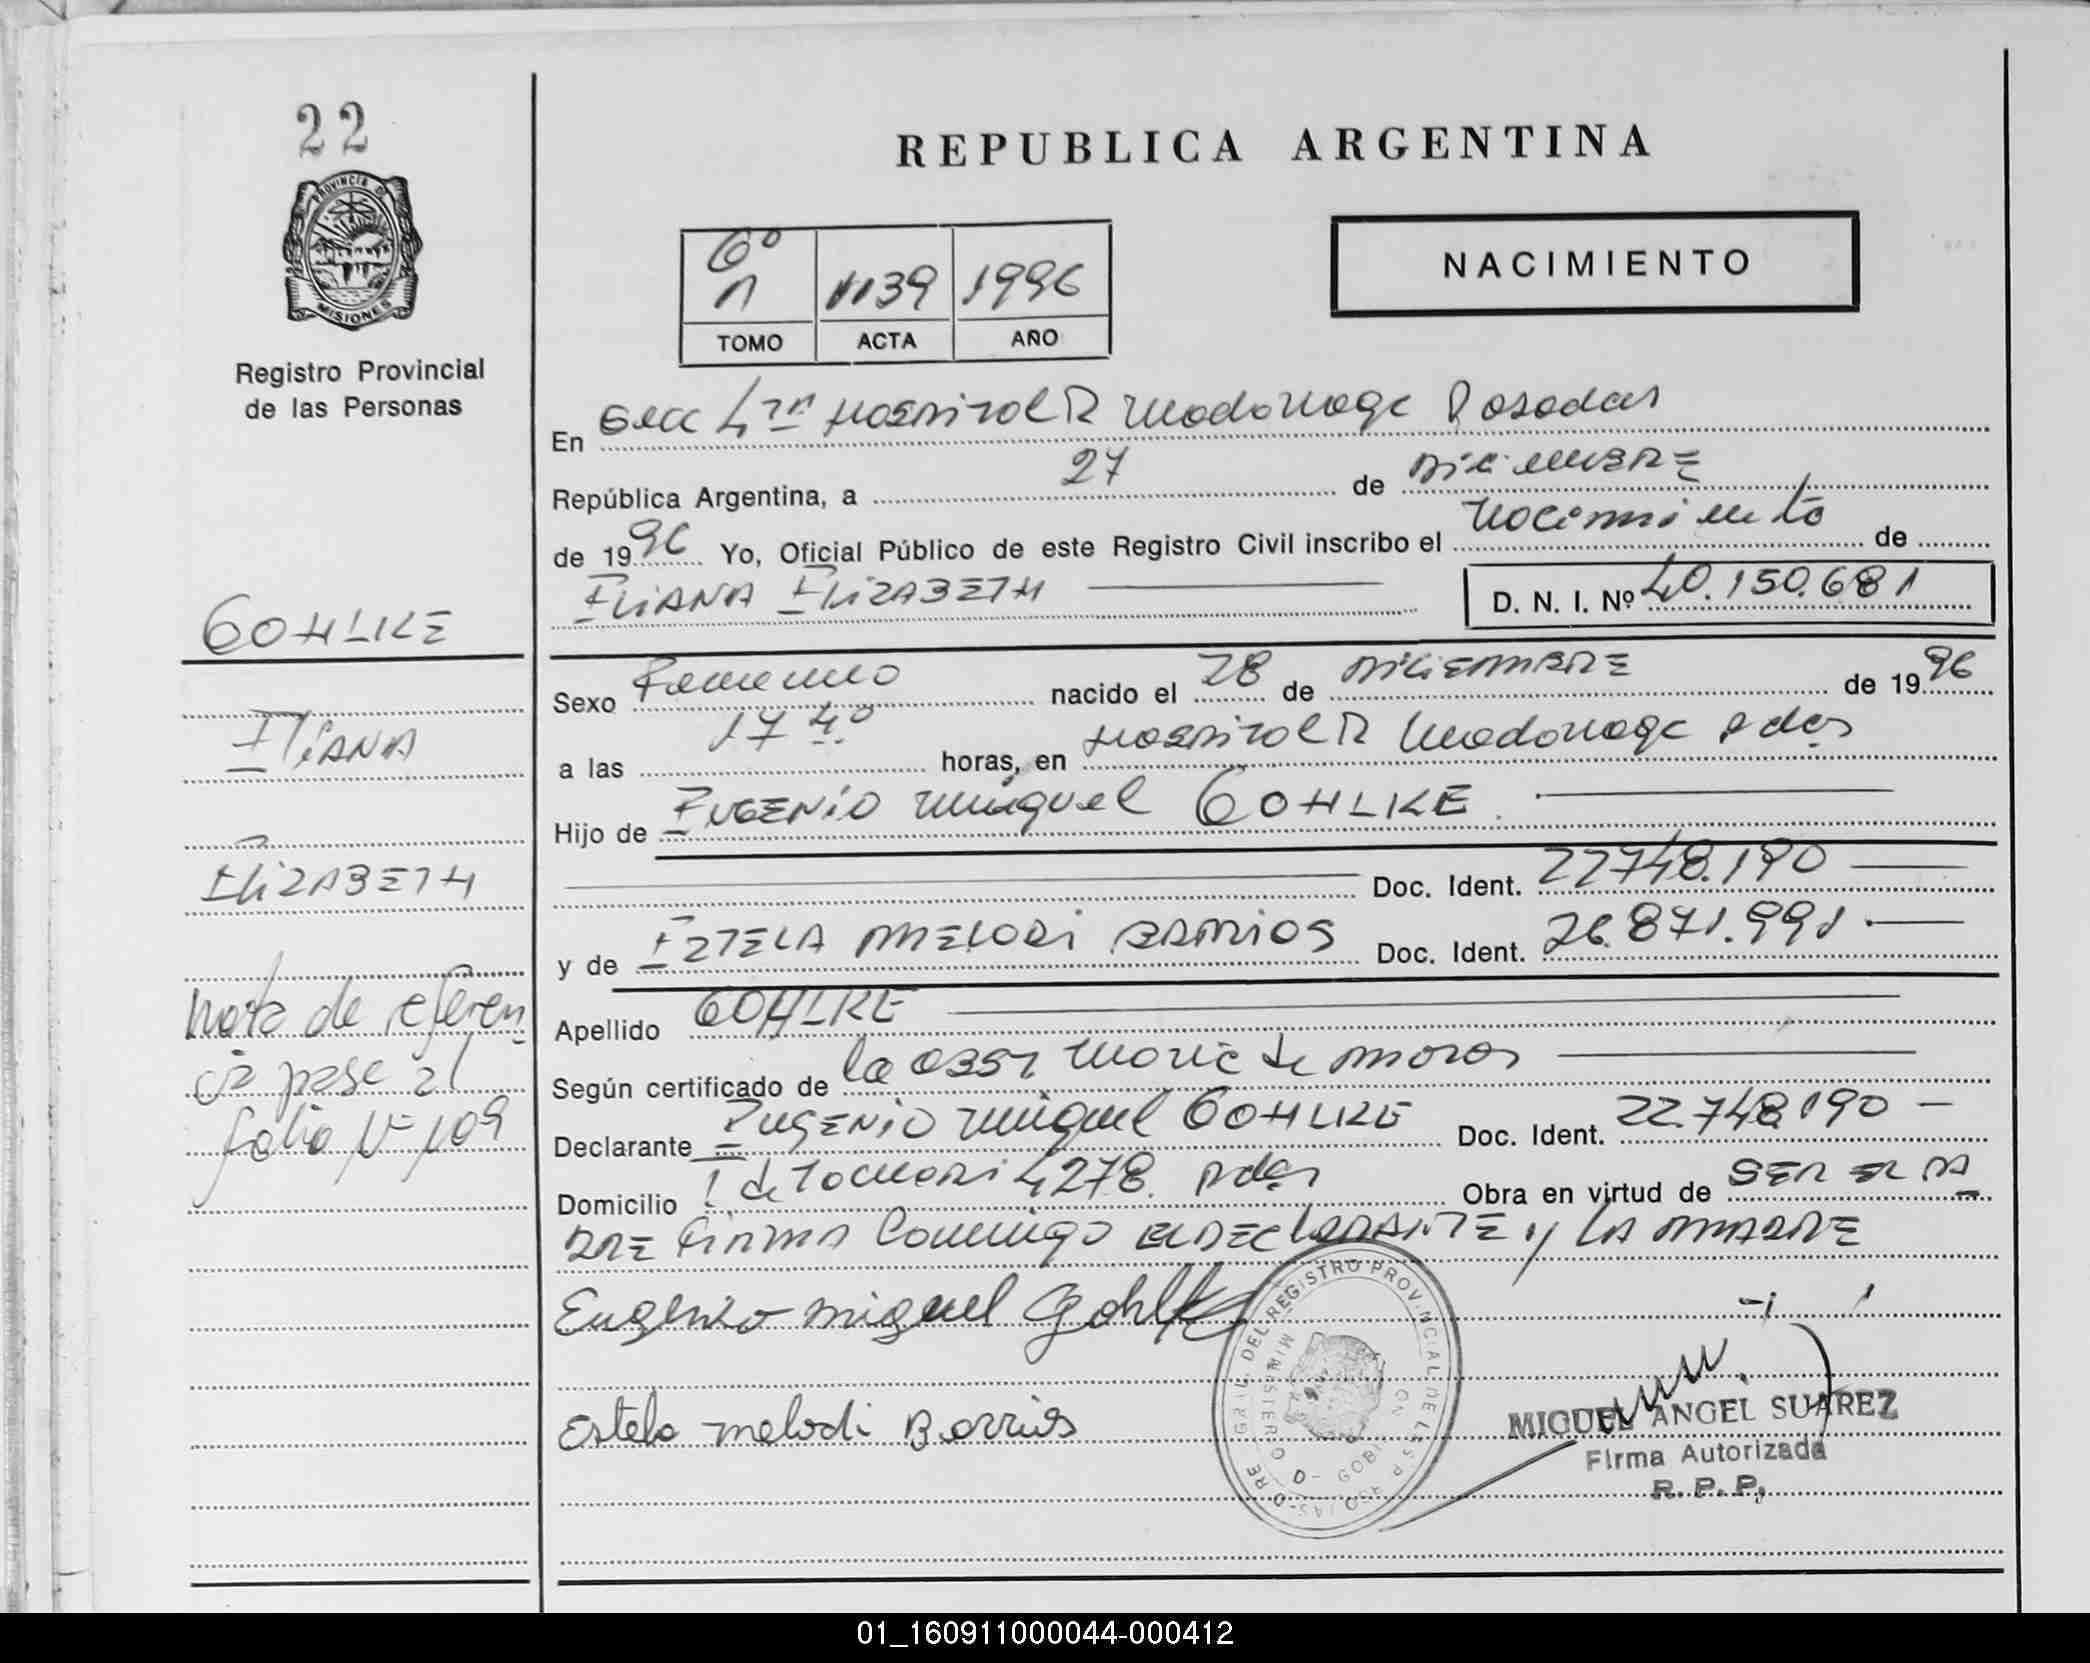 22
PROVINCIA DE
MISIONES
Registro Provincial
de las Personas
GOHLKE
ELIANA
ELIZABETH
Nota de referen
cia pase al
folio Nº 109
REPUBLICA ARGENTINA
NACIMIENTO
6º 1139 1996
TOMO ACTA AÑO
En Secc 4ta Hospital R Madariaga Posadas
República Argentina, a 27 de Diciembre
de 1996 Yo, Oficial Público de este Registro Civil inscribo el Nacimiento de
ELIANA ELIZABETH D. N. I. Nº 40.150.681
Sexo Femenino nacido el 28 de Diciembre de 1996
a las 17 40 horas, en Hospital R Madariaga Pdas
Hijo de Eugenio Miguel GOHLKE
Doc. Ident. 22748.190
y de Estela Melodi Barrios Doc. Ident. 26.871.991
Apellido GOHLKE
Según certificado de la Obst
Declarante Eugenio Miguel GOHLKE Doc. Ident. 22.748190
Domicilio 4278. Pdas Obra en virtud de ser el pa
dre firma conmigo el declarante y la madre
Eugenio Miguel Gohlke
Estela Melodi Barrios
GRAL. DEL REGISTRO PROVINCIAL DE LAS P
MINISTERIO D- GOB
MIGUEL ANGEL SUAREZ
Firma Autorizada
R. P. P.
01_160911000044-000412